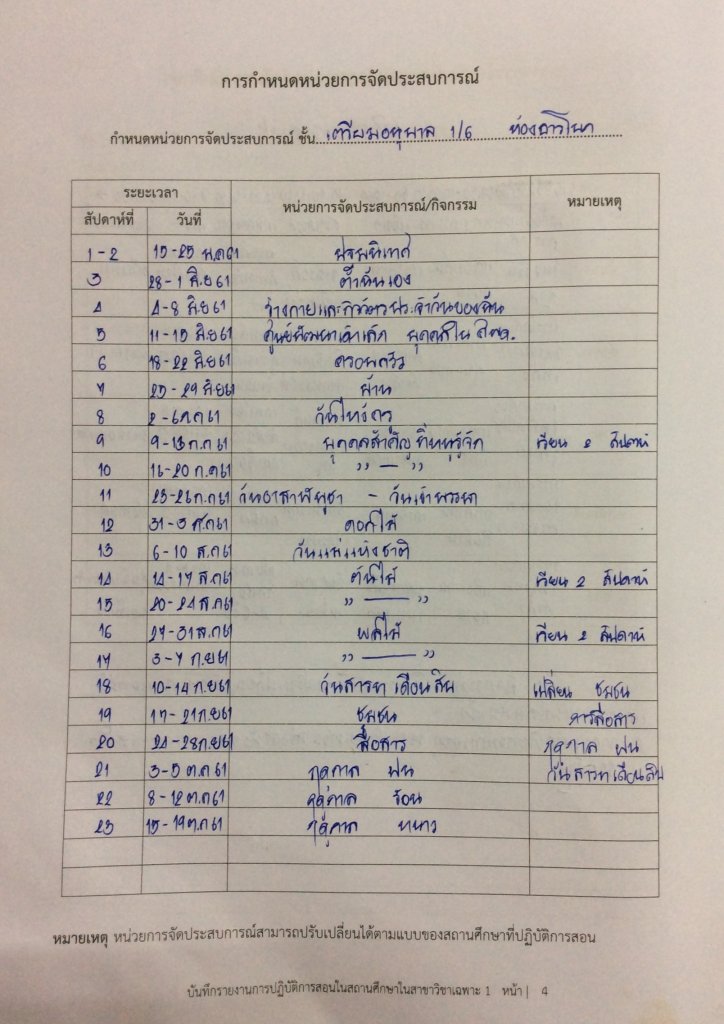 การกำหนดหน่วยการจัดประสบการณ์
กำหนดหน่วยการจัดประสบการณ์ ชั้น เตรียมอนุบาล 1/6 ห้อง
ระยะเวลา หน่วยการจัดประสบการณ์/กิจกรรม หมายเหตุ
สัปดาห์ที่ วันที่
1-2 15-25 พ.ค 61 ปฐมนิเทศ
3 28-1 มิ.ย 61 ตัวฉันเอง
4 4-8 มิ.ย 61 ร่างกายและกิจวัตรประจำวันของฉัน
5 11-15 มิ.ย 61 ศูนย์พัฒนาเด็กเล็ก บุคคลใน
6 18-22 มิ.ย 61 ครอบครัว
7 25-29 มิ.ย 61 บ้าน
8 2-6 ก.ค 61 วันไหว้ครู
9 9-13 ก.ค 61 บุคคลสำคัญที่หนูรู้จัก เรียน 2 สัปดาห์
10 16-20 ก.ค 61 " — "
11 23-26 ก.ค 61 วันอาสาฬหบูชา - วันเข้าพรรษา
12 31-3 ส.ค 61 ดอกไม้
13 6-10 ส.ค 61 วันแม่แห่งชาติ
14 14-17 ส.ค 61 ต้นไม้ เรียน 2 สัปดาห์
15 20-24 ส.ค 61 " — "
16 27-31 ส.ค 61 ผลไม้ เรียน 2 สัปดาห์
17 3-7 ก.ย 61 " — "
18 10-14 ก.ย 61 วันสารทเดือนสิบ เปลี่ยน ชุมชน
19 17-21 ก.ย 61 ชุมชน การสื่อสาร
20 24-28 ก.ย 61 สื่อสาร ฤดูกาล ฝน
21 3-5 ต.ค 61 ฤดูกาล ฝน วันสารทเดือนสิบ
22 8-12 ต.ค 61 ฤดูกาล ร้อน
23 15-19 ต.ค 61 ฤดูกาล หนาว
หมายเหตุ หน่วยการจัดประสบการณ์สามารถปรับเปลี่ยนได้ตามแบบของสถานศึกษาที่ปฏิบัติการสอน
บันทึกรายงานการปฏิบัติการสอนในสถานศึกษาในสาขาวิชาเฉพาะ 1 หน้า | 4